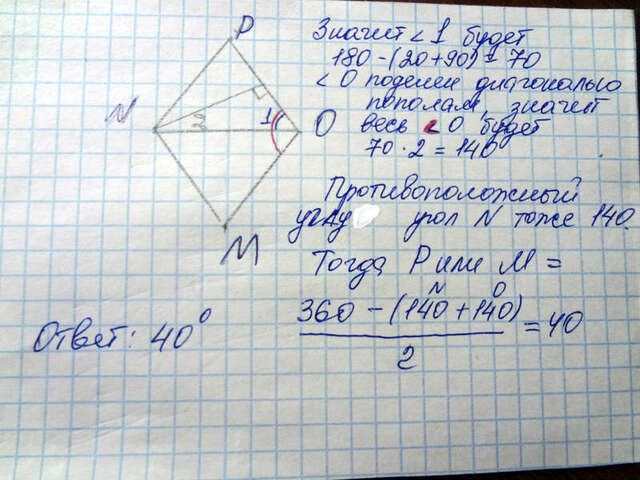 P
N
2
1
O
M
Значит < 1 будет
180 - (20 + 90) = 70
< О поделен диагональю
пополам, значит
весь < О будет
70 · 2 = 140
Противоположный
углу угол N тоже 140.
Тогда P или M =
N O
360 - (140 + 140)
= 40
2
Ответ: 40°